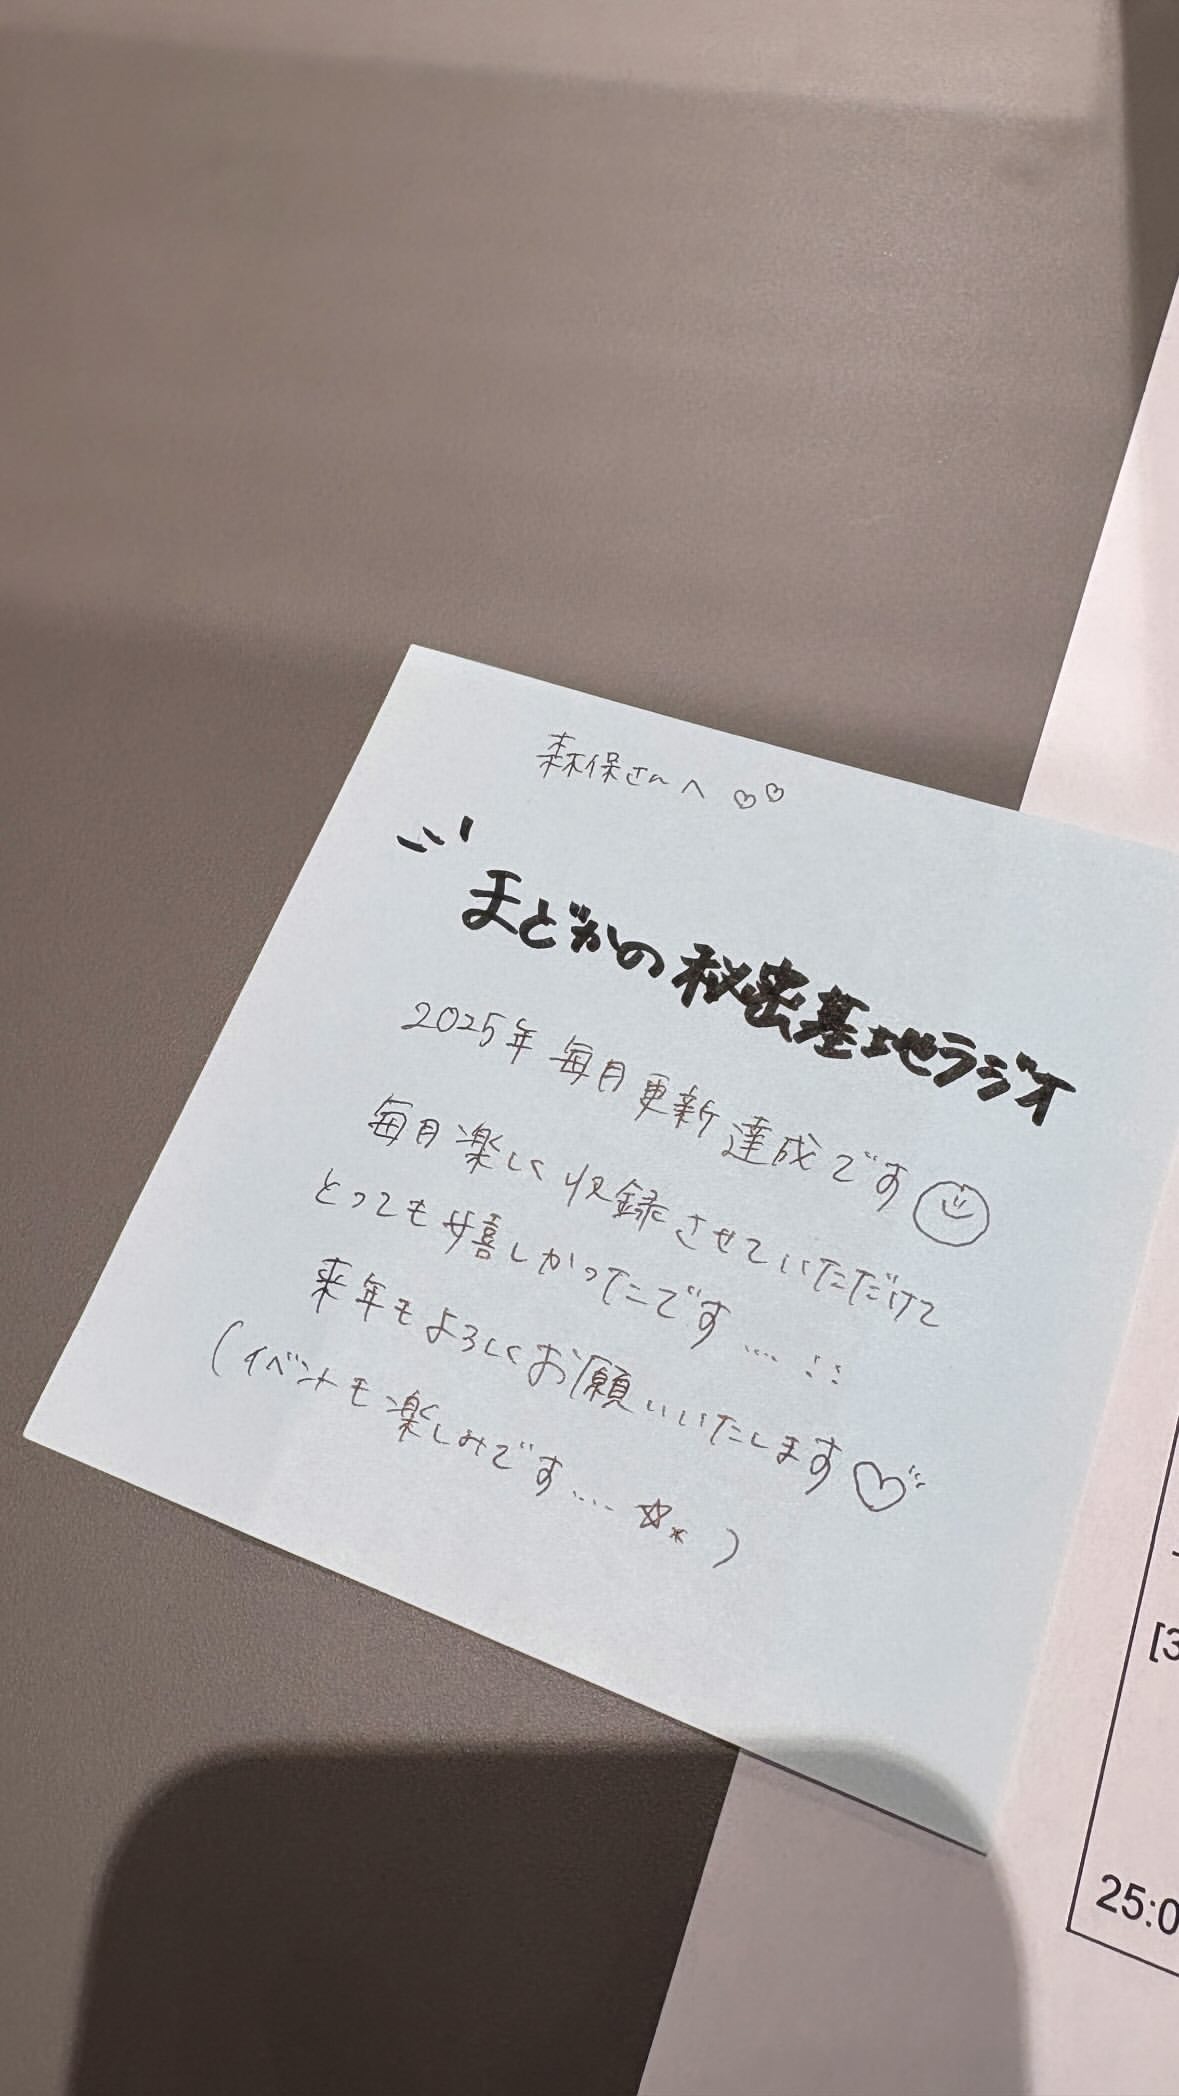 森保さんへ ♡♡
まどかの秘密基地ラジオ
2025年 毎月更新達成です☺
毎月楽しく収録させていただけて
とっても嬉しかったです....!!
来年もよろしくお願いいたします♡
(イベントも楽しみです....☆*)
[3
25:0